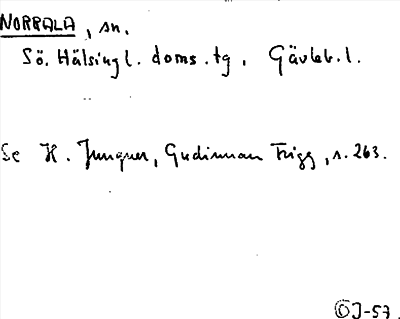 NORRALA, sn.
Sö. Hälsingl. doms. tg, Gävleb. l.
Se H. Jungner, Gudinnan Frigg, s. 263.
ÖJ-57.